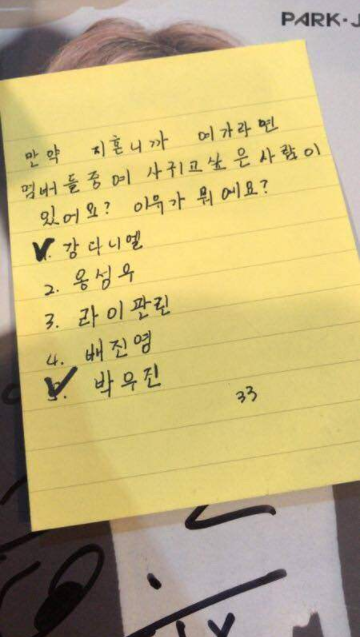 PARK·J
만약 지훈니까 여가라면
멤버들중에 사귀고싶은사람이
있어요? 이유가 뭐예요?
1. 강다니엘
2. 옹성우
3. 라이관린
4. 배진영
5. 박우진
33